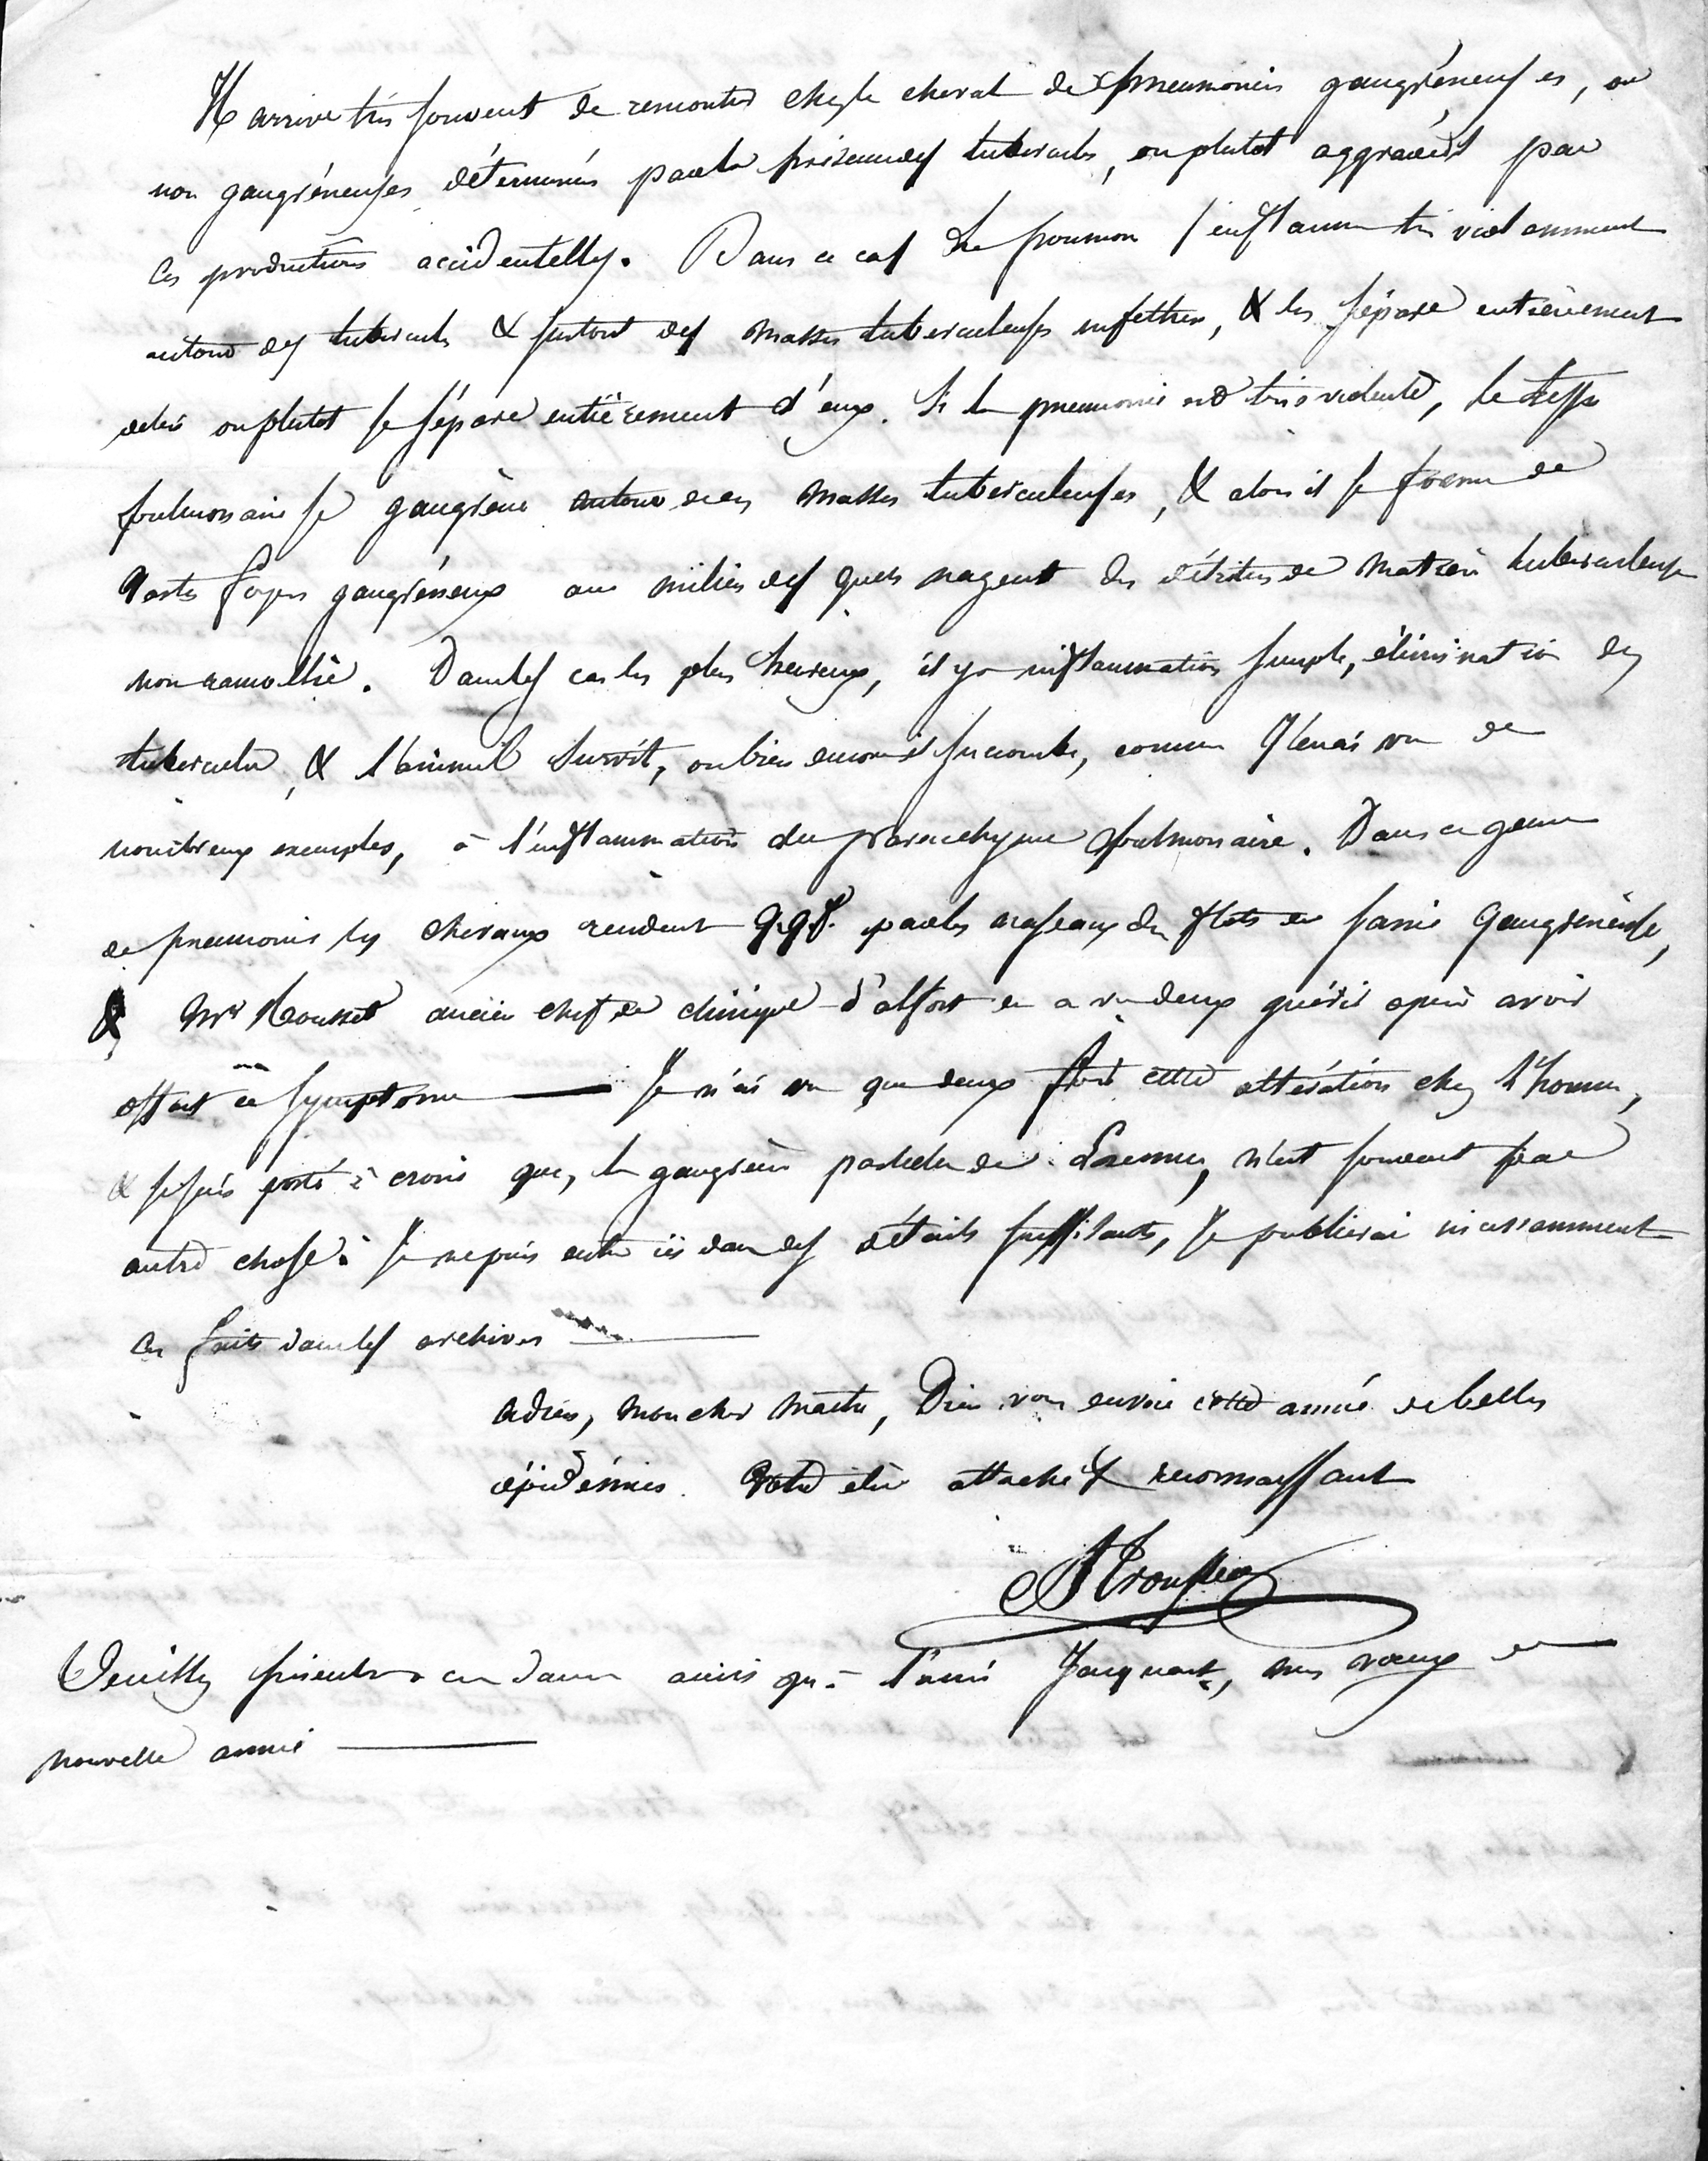 Il arrive très souvent de remontrer chez le cheval des pneumonies gangréneuses, ou
non gangréneuses déterminées par la présence des tubercules, ou plutot aggravées par
ces productions accidentelles. Dans ce cas le poumon s'enflamme très violemment
autour des tubercules & surtout des masses tuberculeuses, & les sépare entièrement
ou plutot se sépare entièrement d'eux. Si la pneumonie est très violente, le tissu
pulmonaire se gangrène autour de ces masses tuberculeuses, & alors il se forme de
vastes foyers gangréneux au milieu desquels nagent des détritus de matière tuberculeuse
non ramollie. Dans les cas les plus heureux, il y a inflammation simple, élimination des
tubercules, & l'animal survit, ou bien encore il succombe, comme j'en ai vu de
nombreux exemples, à l'inflammation du parenchyme pulmonaire. Dans ce genre
de pneumonies les chevaux rendent qqf. par les naseaux des flots de sanie gangréneuse,
& Mr Rousset ancien chef de clinique d'alfort en a vu deux guérir après avoir
offert ce symptome — Je n'ai vu que deux fois cette altération chez l'homme,
& je suis porté à croire que, la gangrène partielle de Laennec, n'est souvent pas
autre chose. Je ne puis entrer ici dans des détails suffisants, je publierai incessamment
ces faits dans les archives —
Adieu, mon cher maitre, Dieu vous envoie cette année de belles
épidémies. Votre élève attaché & reconnaissant
A Trousseau
Veuillez présenter à ces dames ainsi qu'à l'ami Jacquart, mes vœux de
nouvelle année —